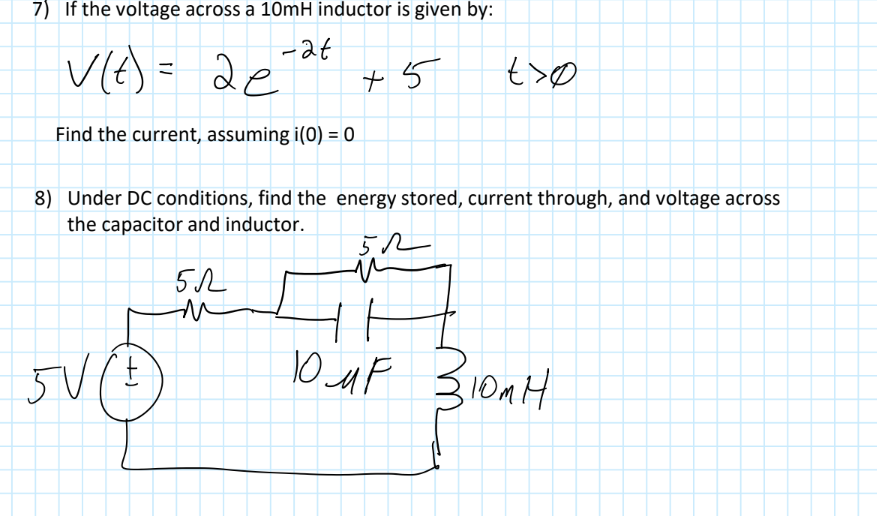 7) If the voltage across a 10mH inductor is given by:
V(t) = 2e^-2t + 5 t>0
Find the current, assuming i(0) = 0
8) Under DC conditions, find the energy stored, current through, and voltage across
the capacitor and inductor.
5Ω
5Ω
5V
+
-
10μF
10mH